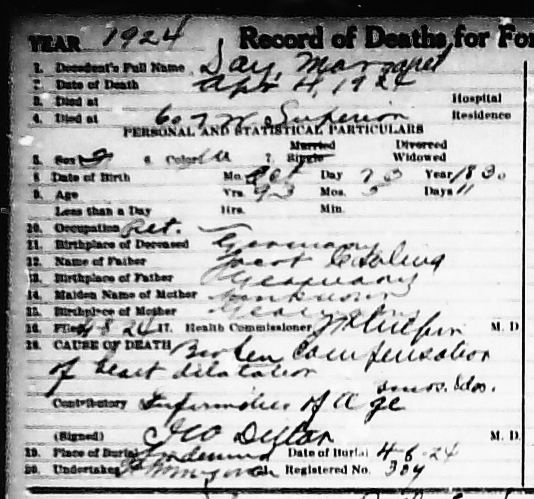 YEAR 1924 Record of Deaths for For
1. Decedent's Full Name Day, Margaret
2. Date of Death Apr 4, 1924
3. Died at Hospital
4. Died at 607 W Superior Residence
PERSONAL AND STATISTICAL PARTICULARS
Married Divorced
5. Sex F 6. Color W 7. Single Widowed
8. Date of Birth Mo. Day Year 1830
9. Age Yrs. 93 Mos. Days 11
Less than a Day Hrs. Min.
10. Occupation Ret.
11. Birthplace of Deceased Germany
12. Name of Father Jacob
13. Birthplace of Father Germany
14. Maiden Name of Mother Unknown
15. Birthplace of Mother Germany
16. Filed 4 8 24 17. Health Commissioner M. D.
18. CAUSE OF DEATH Broken Compensation
of heart dilatation
5 mos. & dos.
Contributory Infirmities of Age
(Signed) M. D.
19. Place of Burial Lindenwood Date of Burial 4-6-24
20. Undertaker Registered No. 304